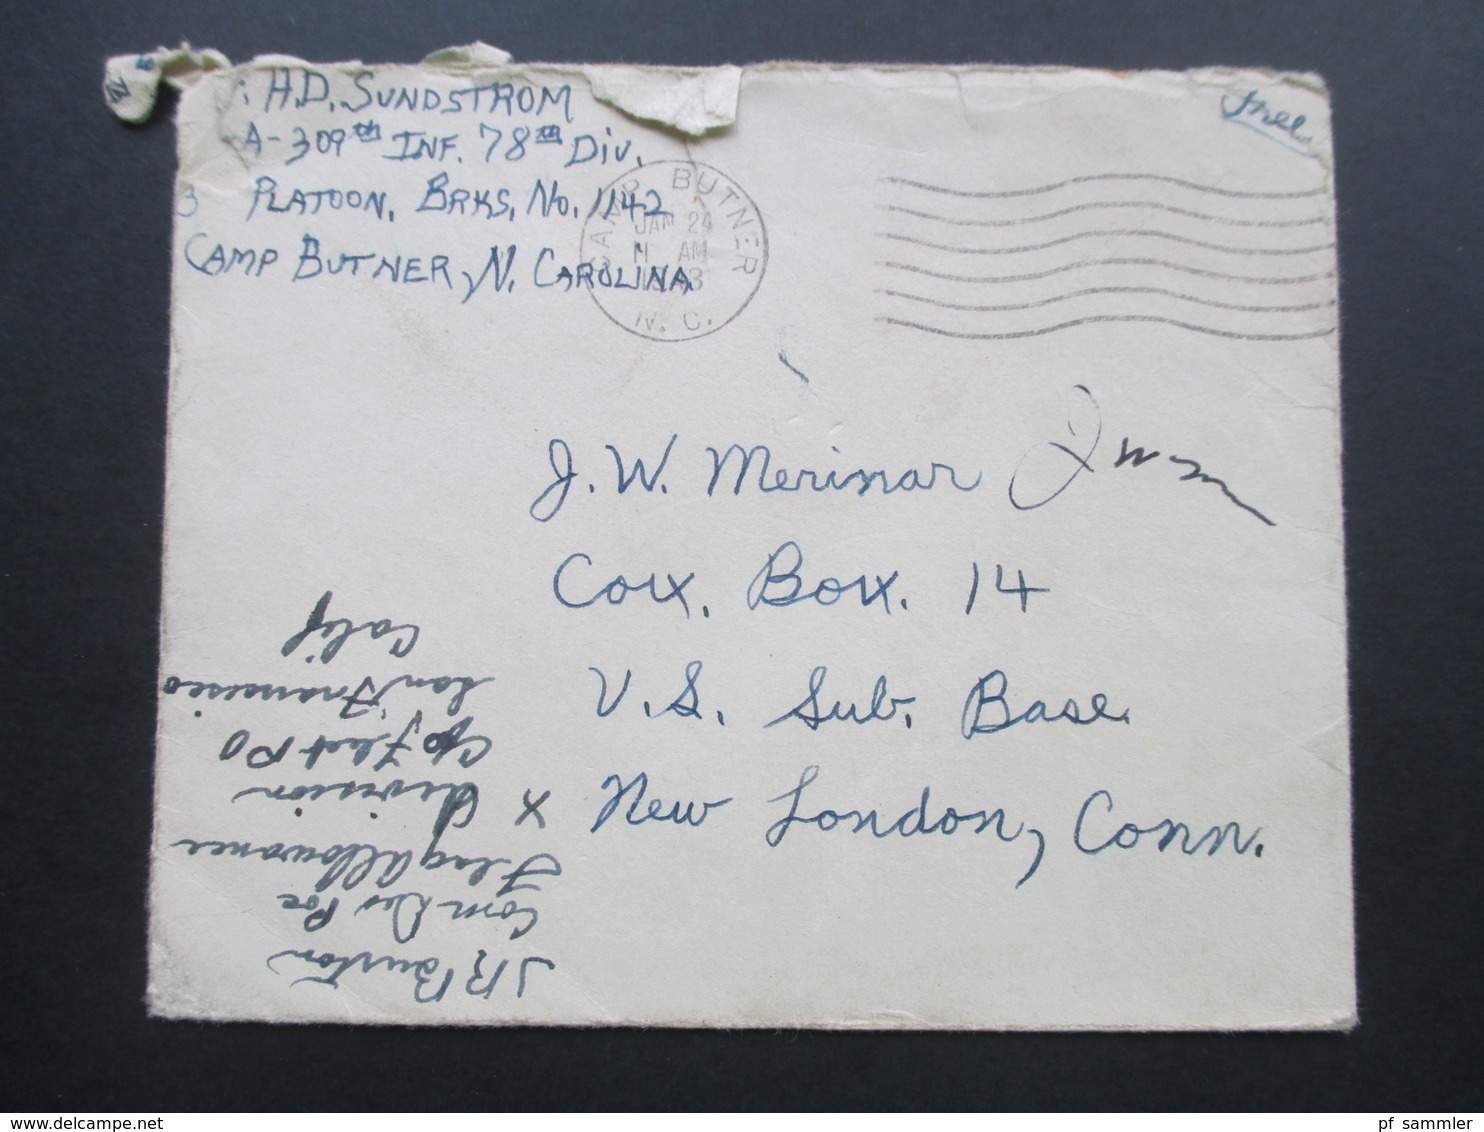 H.D. SUNDSTROM
A-309th INF. 78th DIV.
3 PLATOON, BRKS, No. 1142
CAMP BUTNER, N. CAROLINA
Free
CAMP BUTNER
JAN 24
11 AM
N. C.
J. W. Merinar
Cox. Box. 14
U.S. Sub. Base
New London, Conn.
J R Burton
Com Des Pac
Flag Allowance
x division
c/o Fleet PO
San Francisco
Calif
pf_sammler